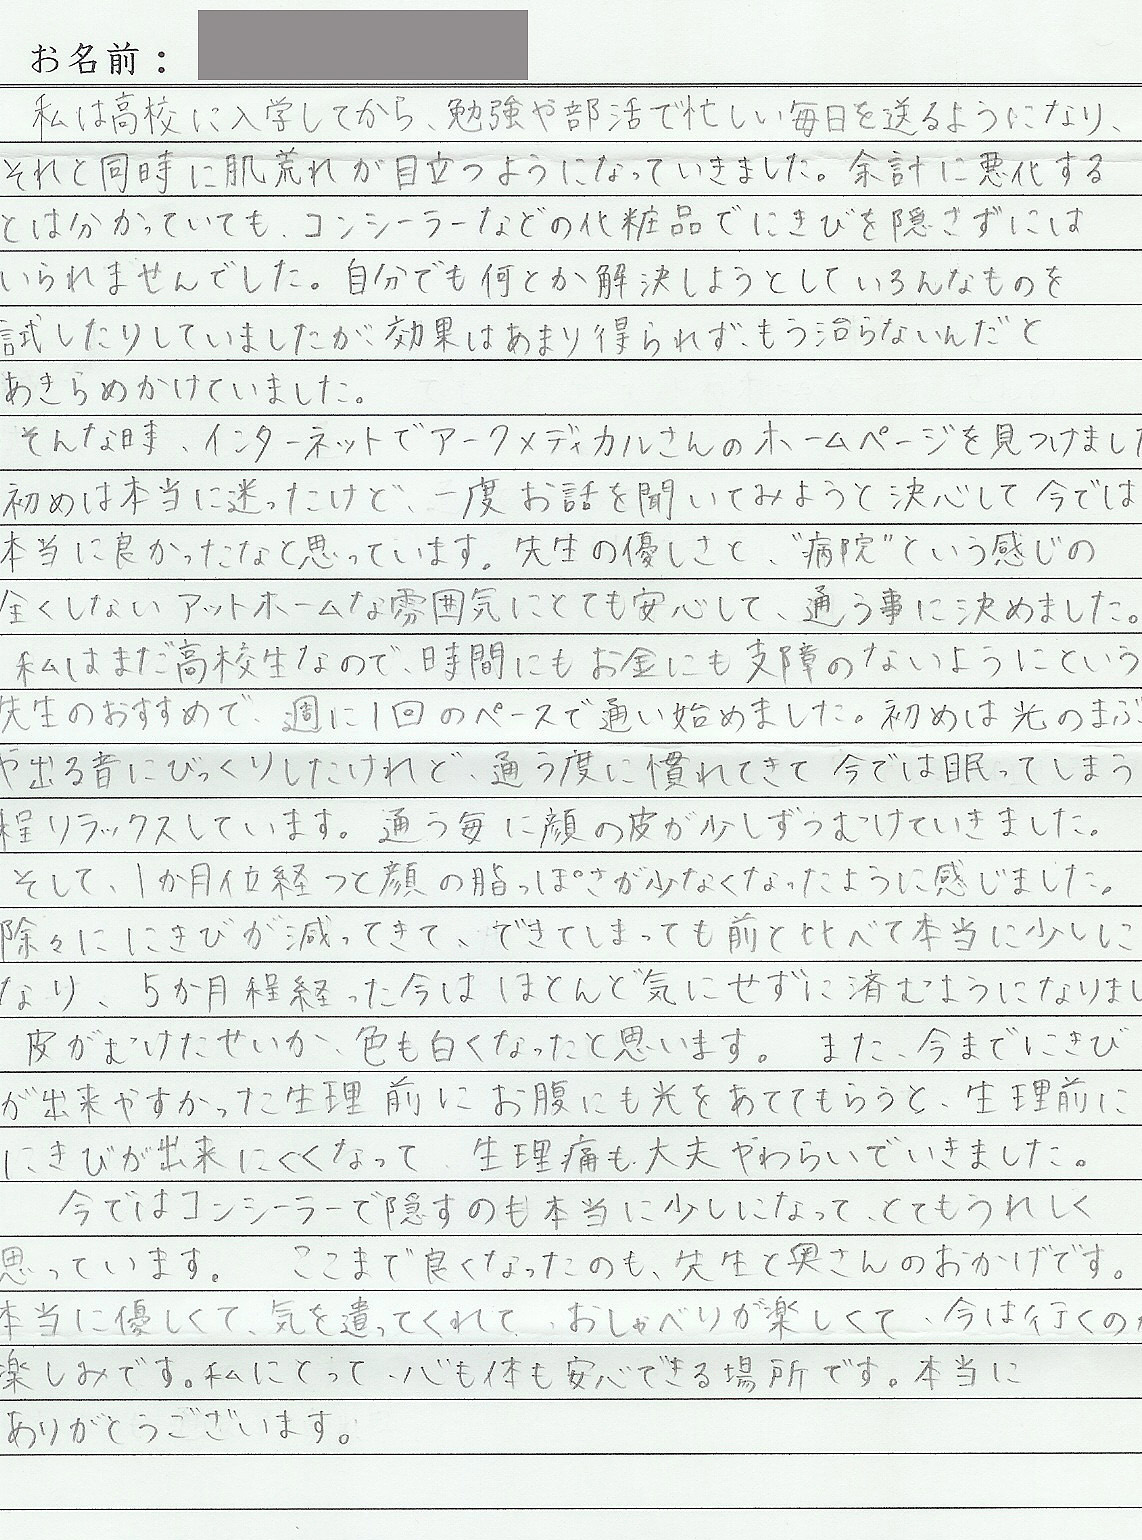 お名前：
私は高校に入学してから、勉強や部活で忙しい毎日を送るようになり、
それと同時に肌荒れが目立つようになっていきました。余計に悪化する
とは分かっていても、コンシーラーなどの化粧品でにきびを隠さずには
いられませんでした。自分でも何とか解決しようとしていろんなものを
試したりしていましたが、効果はあまり得られず、もう治らないんだと
あきらめかけていました。
そんな時、インターネットでアークメディカルさんのホームページを見つけました
初めは本当に迷ったけど、一度お話を聞いてみようと決心して今では
本当に良かったなと思っています。先生の優しさと、"病院"という感じの
全くしないアットホームな雰囲気にとても安心して、通う事に決めました。
私はまだ高校生なので、時間にもお金にも支障のないようにという
先生のおすすめで、週に1回のペースで通い始めました。初めは光のまぶ
や出る音にびっくりしたけれど、通う度に慣れてきて今では眠ってしまう
程リラックスしています。通う毎に顔の皮が少しずつむけていきました。
そして、1か月位経つと顔の脂っぽさが少なくなったように感じました。
除々ににきびが減ってきて、できてしまっても前と比べて本当に少しに
なり、5か月程経った今はほとんど気にせずに済むようになりまし
皮がむけたせいか、色も白くなったと思います。また、今までにきび
が出来やすかった生理前にお腹にも光をあててもらうと、生理前に
にきびが出来にくくなって、生理痛も大夫やわらいでいきました。
今ではコンシーラーで隠すのも本当に少しになって、とてもうれしく
思っています。ここまで良くなったのも、先生と奥さんのおかげです。
本当に優しくて、気を遣ってくれて、おしゃべりが楽しくて、今は行くのが
楽しみです。私にとって、心も体も安心できる場所です。本当に
ありがとうございます。